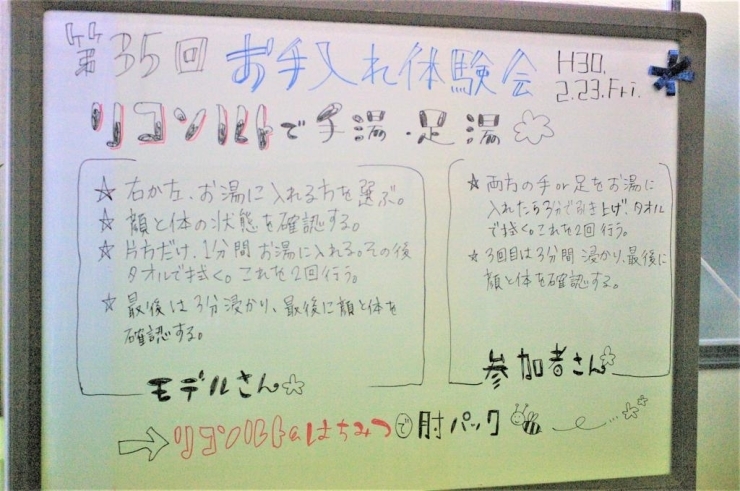 第35回 お手入れ体験会 H30.
2.23.Fri.
リコソルトで手湯・足湯
☆ 右か左、お湯に入れる方を選ぶ。
☆ 顔と体の状態を確認する。
☆ 片方だけ、1分間お湯に入れる。その後
タオルで拭く。これを2回行う。
☆ 最後は3分浸かり、最後に顔と体を
確認する。
モデルさん
☆ 両方の手or足をお湯に
入れたら3分で引き上げ、タオル
で拭く。これを2回行う。
☆ 3回目は3分間浸かり、最後に
顔と体を確認する。
参加者さん
⇒ リコソルト&はちみつで肘パック